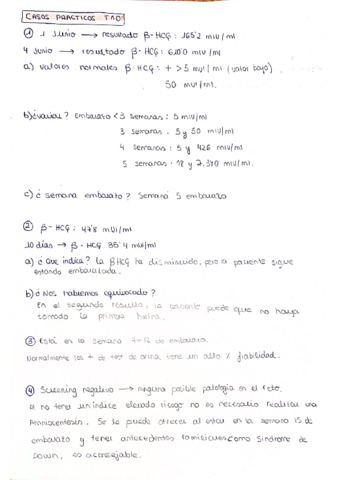 CASOS PRÁCTICOS TAO1
① 1 Junio → resultado β-HCG: 165'2 mIU/ml
4 Junio → resultado β-HCG: 610'0 mIU/ml
a) valores normales β-HCG: + >5 mUI/ml (valor bajo)
50 mUI/ml.
b) ¿varias? Embarazo <3 semanas: 5 mIU/ml
3 semanas: 5 y 50 mIU/ml
4 semanas: 5 y 426 mIU/ml
5 semanas: 18 y 7.340 mIU/ml.
c) ¿ semana embarazo? Semana 5 embarazo
② β-HCG: 47'8 mUI/ml
10 días → β-HCG 35'4 mUI/ml
a) ¿ Que indica? La βHCG ha disminuido, pero la paciente sigue
estando embarazada.
b) ¿ Nos habremos equivocado?
En el segundo resulta, la paciente puede que no haya
tomado la primera
③ Está en la semana 4-12 de embarazo.
Normalmente los + de test de orina tiene un alto % fiabilidad.
④ Screening negativo → ninguna posible patología en el feto.
al no tener un índice elevado riesgo no es necesario realizar una
Amniocentesis. Se le puede ofrecer al estar en la semana 15 de
embarazo y tener antecedentes familiares como Síndrome de
Down, es aconsejable.